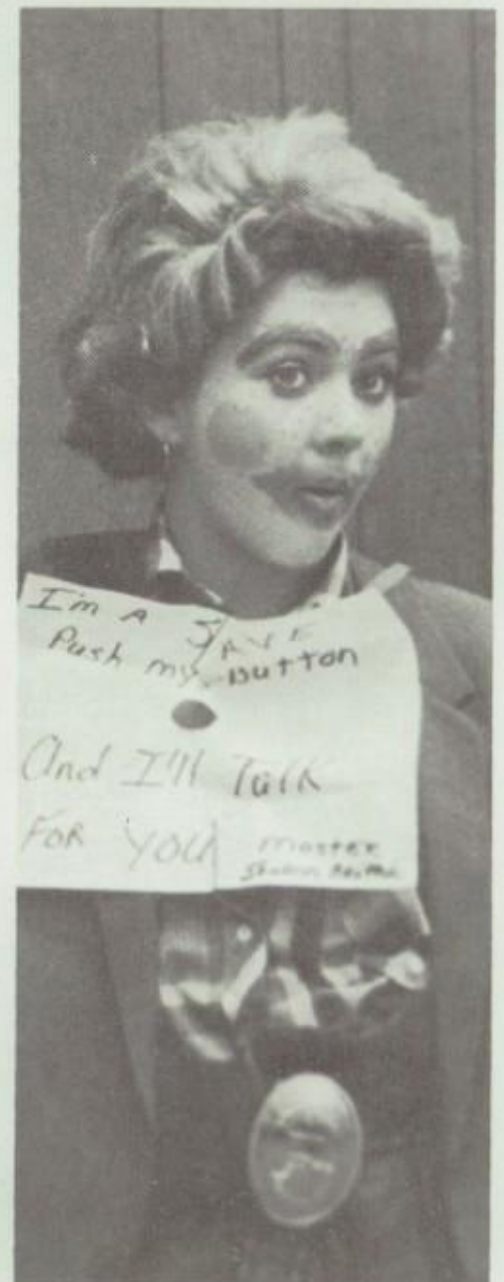 I'm A
Push my Button
And I'll Talk
FOR YOU
master